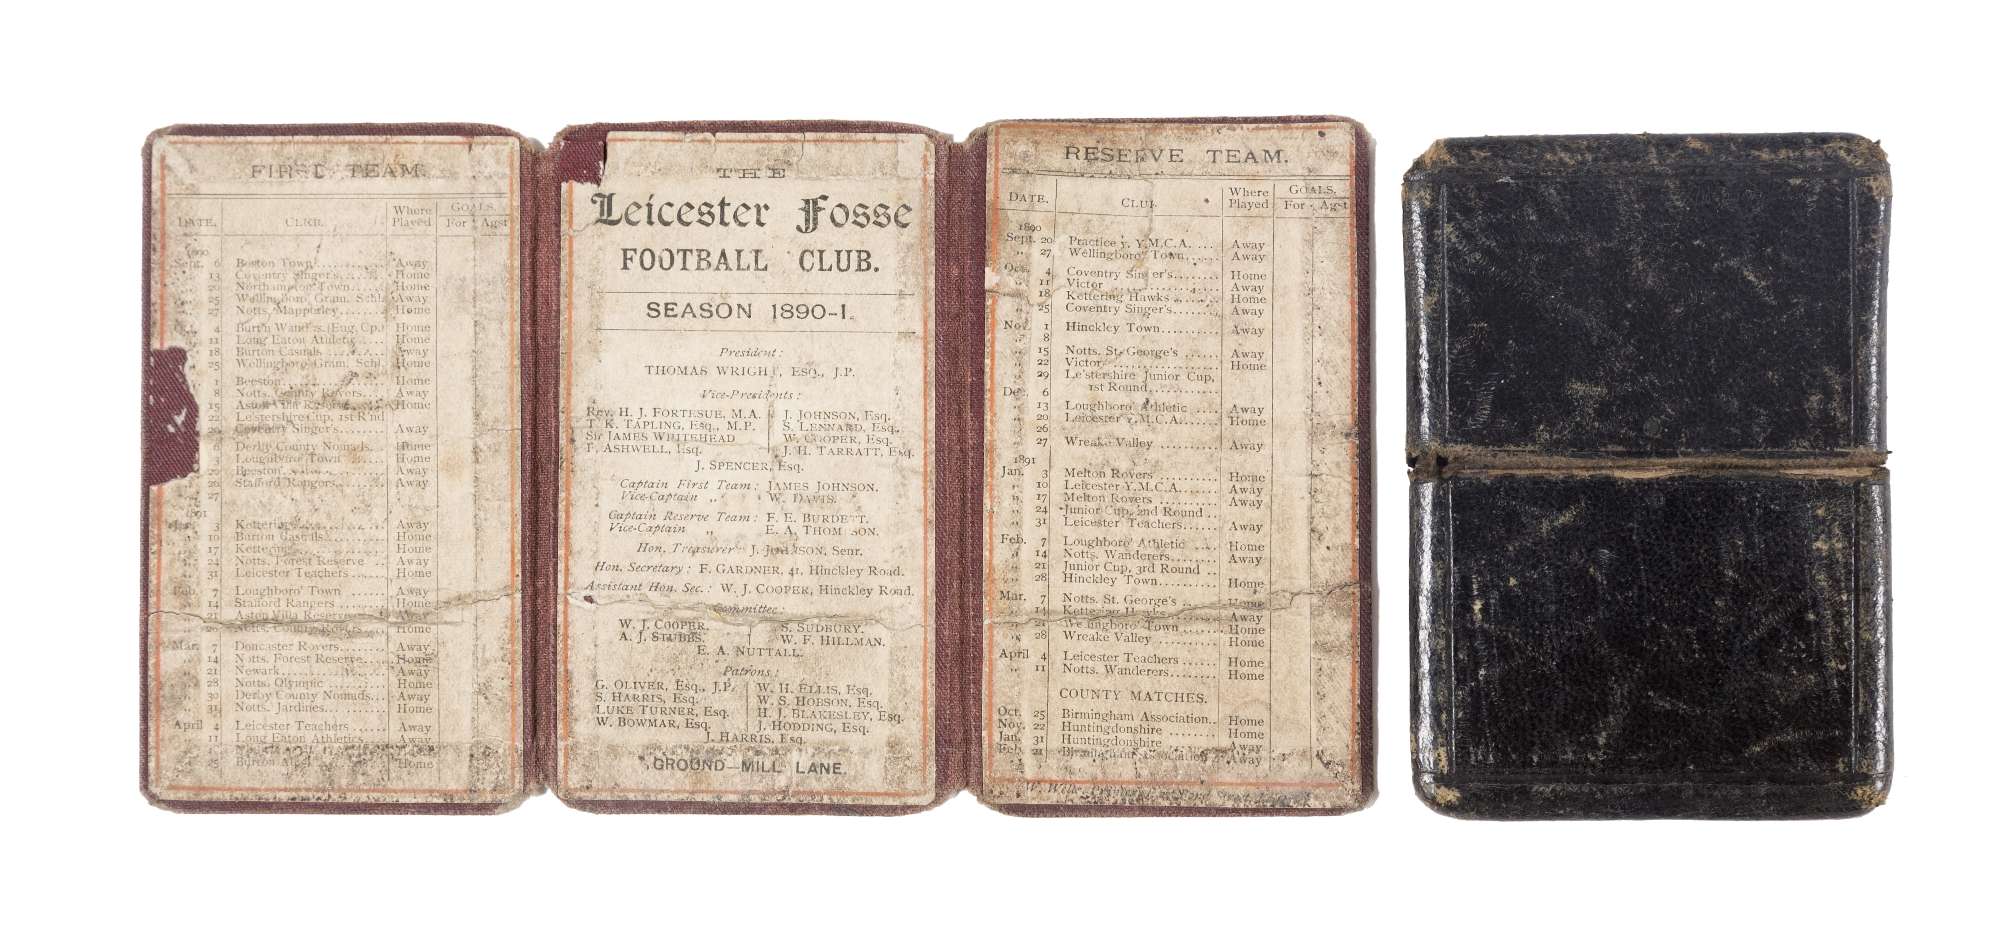 FIRST TEAM.
DATE. CLUB. Where Played GOALS. For Agst
1890
Sept. 6 Beeston Town Away
13 Coventry Singer's Home
20 Northampton Town Home
25 Wellingboro' Gram. Schl. Away
27 Notts. Mapperley Home
4 Burton Wands. (Eng. Cp.) Home
11 Long Eaton Athletic Home
18 Burton Casuals Away
25 Wellingboro' Gram. Schl. Home
1 Beeston Home
8 Notts. County Rovers Away
15 Aston Villa Reserve Home
22 Le'stershire Cup, 1st Rnd
Coventry Singer's Away
6 Derby County Nomads Home
Loughboro' Town Home
20 Beeston Away
26 Stafford Rangers Home
27
1891
Jan. 3 Kettering Away
10 Burton Casuals Home
17 Kettering Home
24 Notts. Forest Reserve Away
31 Leicester Teachers Home
Feb. 7 Loughboro' Town Away
14 Stafford Rangers Home
21 Aston Villa Reserve Away
28 Notts. County Rovers Home
Mar. 7 Doncaster Rovers Away
14 Notts. Forest Reserve Home
21 Newark Away
28 Notts. Olympic Home
30 Derby County Nomads Away
31 Notts. Jardines Home
April 4 Leicester Teachers Away
11 Long Eaton Athletics Away
25 Burton Home
THE
Leicester Fosse
FOOTBALL CLUB.
SEASON 1890-1.
President:
THOMAS WRIGHT, ESQ., J.P.
Vice-Presidents:
Rev. H. J. FORTESUE, M.A. J. JOHNSON, Esq.
T. K. TAPLING, Esq., M.P. S. LENNARD, Esq.
Sir JAMES WHITEHEAD W. COOPER, Esq.
F. ASHWELL, Esq. J. H. TARRATT, Esq.
J. SPENCER, Esq.
Captain First Team: JAMES JOHNSON.
Vice-Captain ,, W. DAVIS.
Captain Reserve Team: F. E. BURDETT.
Vice-Captain ,, E. A. THOMPSON.
Hon. Treasurer: J. JOHNSON, Senr.
Hon. Secretary: F. GARDNER, 41, Hinckley Road.
Assistant Hon. Sec.: W. J. COOPER, Hinckley Road.
Committee:
W. J. COOPER. S. SUDBURY.
A. J. STUBBS. W. F. HILLMAN.
E. A. NUTTALL.
Patrons:
G. OLIVER, Esq., J.P. W. H. ELLIS, Esq.
S. HARRIS, Esq. W. S. HOBSON, Esq.
LUKE TURNER, Esq. H. J. BLAKESLEY, Esq.
W. BOWMAR, Esq. J. HODDING, Esq.
J. HARRIS, Esq.
GROUND—MILL LANE.
RESERVE TEAM.
DATE. CLUB. Where Played GOALS. For Agst
1890
Sept. 20 Practice v. Y.M.C.A. Away
,, 27 Wellingboro' Town Away
Oct. 4 Coventry Singer's Home
,, 11 Victor Away
18 Kettering Hawks Home
,, 25 Coventry Singer's Away
Nov. 1 Hinckley Town Away
8
,, 15 Notts. St. George's Away
,, 22 Victor Home
,, 29 Le'stershire Junior Cup,
1st Round
Dec. 6
,, 13 Loughboro' Athletic Away
,, 20 Leicester Y.M.C.A. Home
26
,, 27 Wreake Valley Away
1891
Jan. 3 Melton Rovers Home
,, 10 Leicester Y.M.C.A. Away
,, 17 Melton Rovers Away
,, 24 Junior Cup, 2nd Round
,, 31 Leicester Teachers Away
Feb. 7 Loughboro' Athletic Home
,, 14 Notts. Wanderers Away
,, 21 Junior Cup, 3rd Round
,, 28 Hinckley Town Home
Mar. 7 Notts. St. George's Home
,, 14 Kettering Hawks Away
,, 21 Wellingboro' Town Home
,, 28 Wreake Valley Home
April 4 Leicester Teachers Home
,, 11 Notts. Wanderers Home
COUNTY MATCHES.
Oct. 25 Birmingham Association Home
Nov. 22 Huntingdonshire Home
Jan. 31 Huntingdonshire Away
Feb. 21 Birmingham Association Away